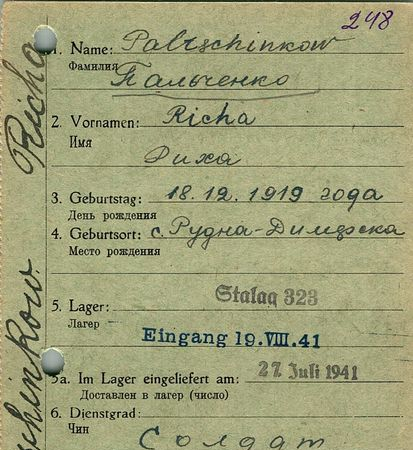 248
1. Name: Paltschinkow
Фамилия
Пальченко
2. Vornamen: Richa
Имя
Риха
3. Geburtstag: 18.12.1919 года
День рождения
4. Geburtsort: с. Рудна-Димерска
Место рождения
5. Lager: Stalag 323
Лагер
Eingang 19.VIII.41
5a. Im Lager eingeliefert am: 27. Juli 1941
Доставлен в лагер (число)
6. Dienstgrad:
Чин
Солдат
Richa